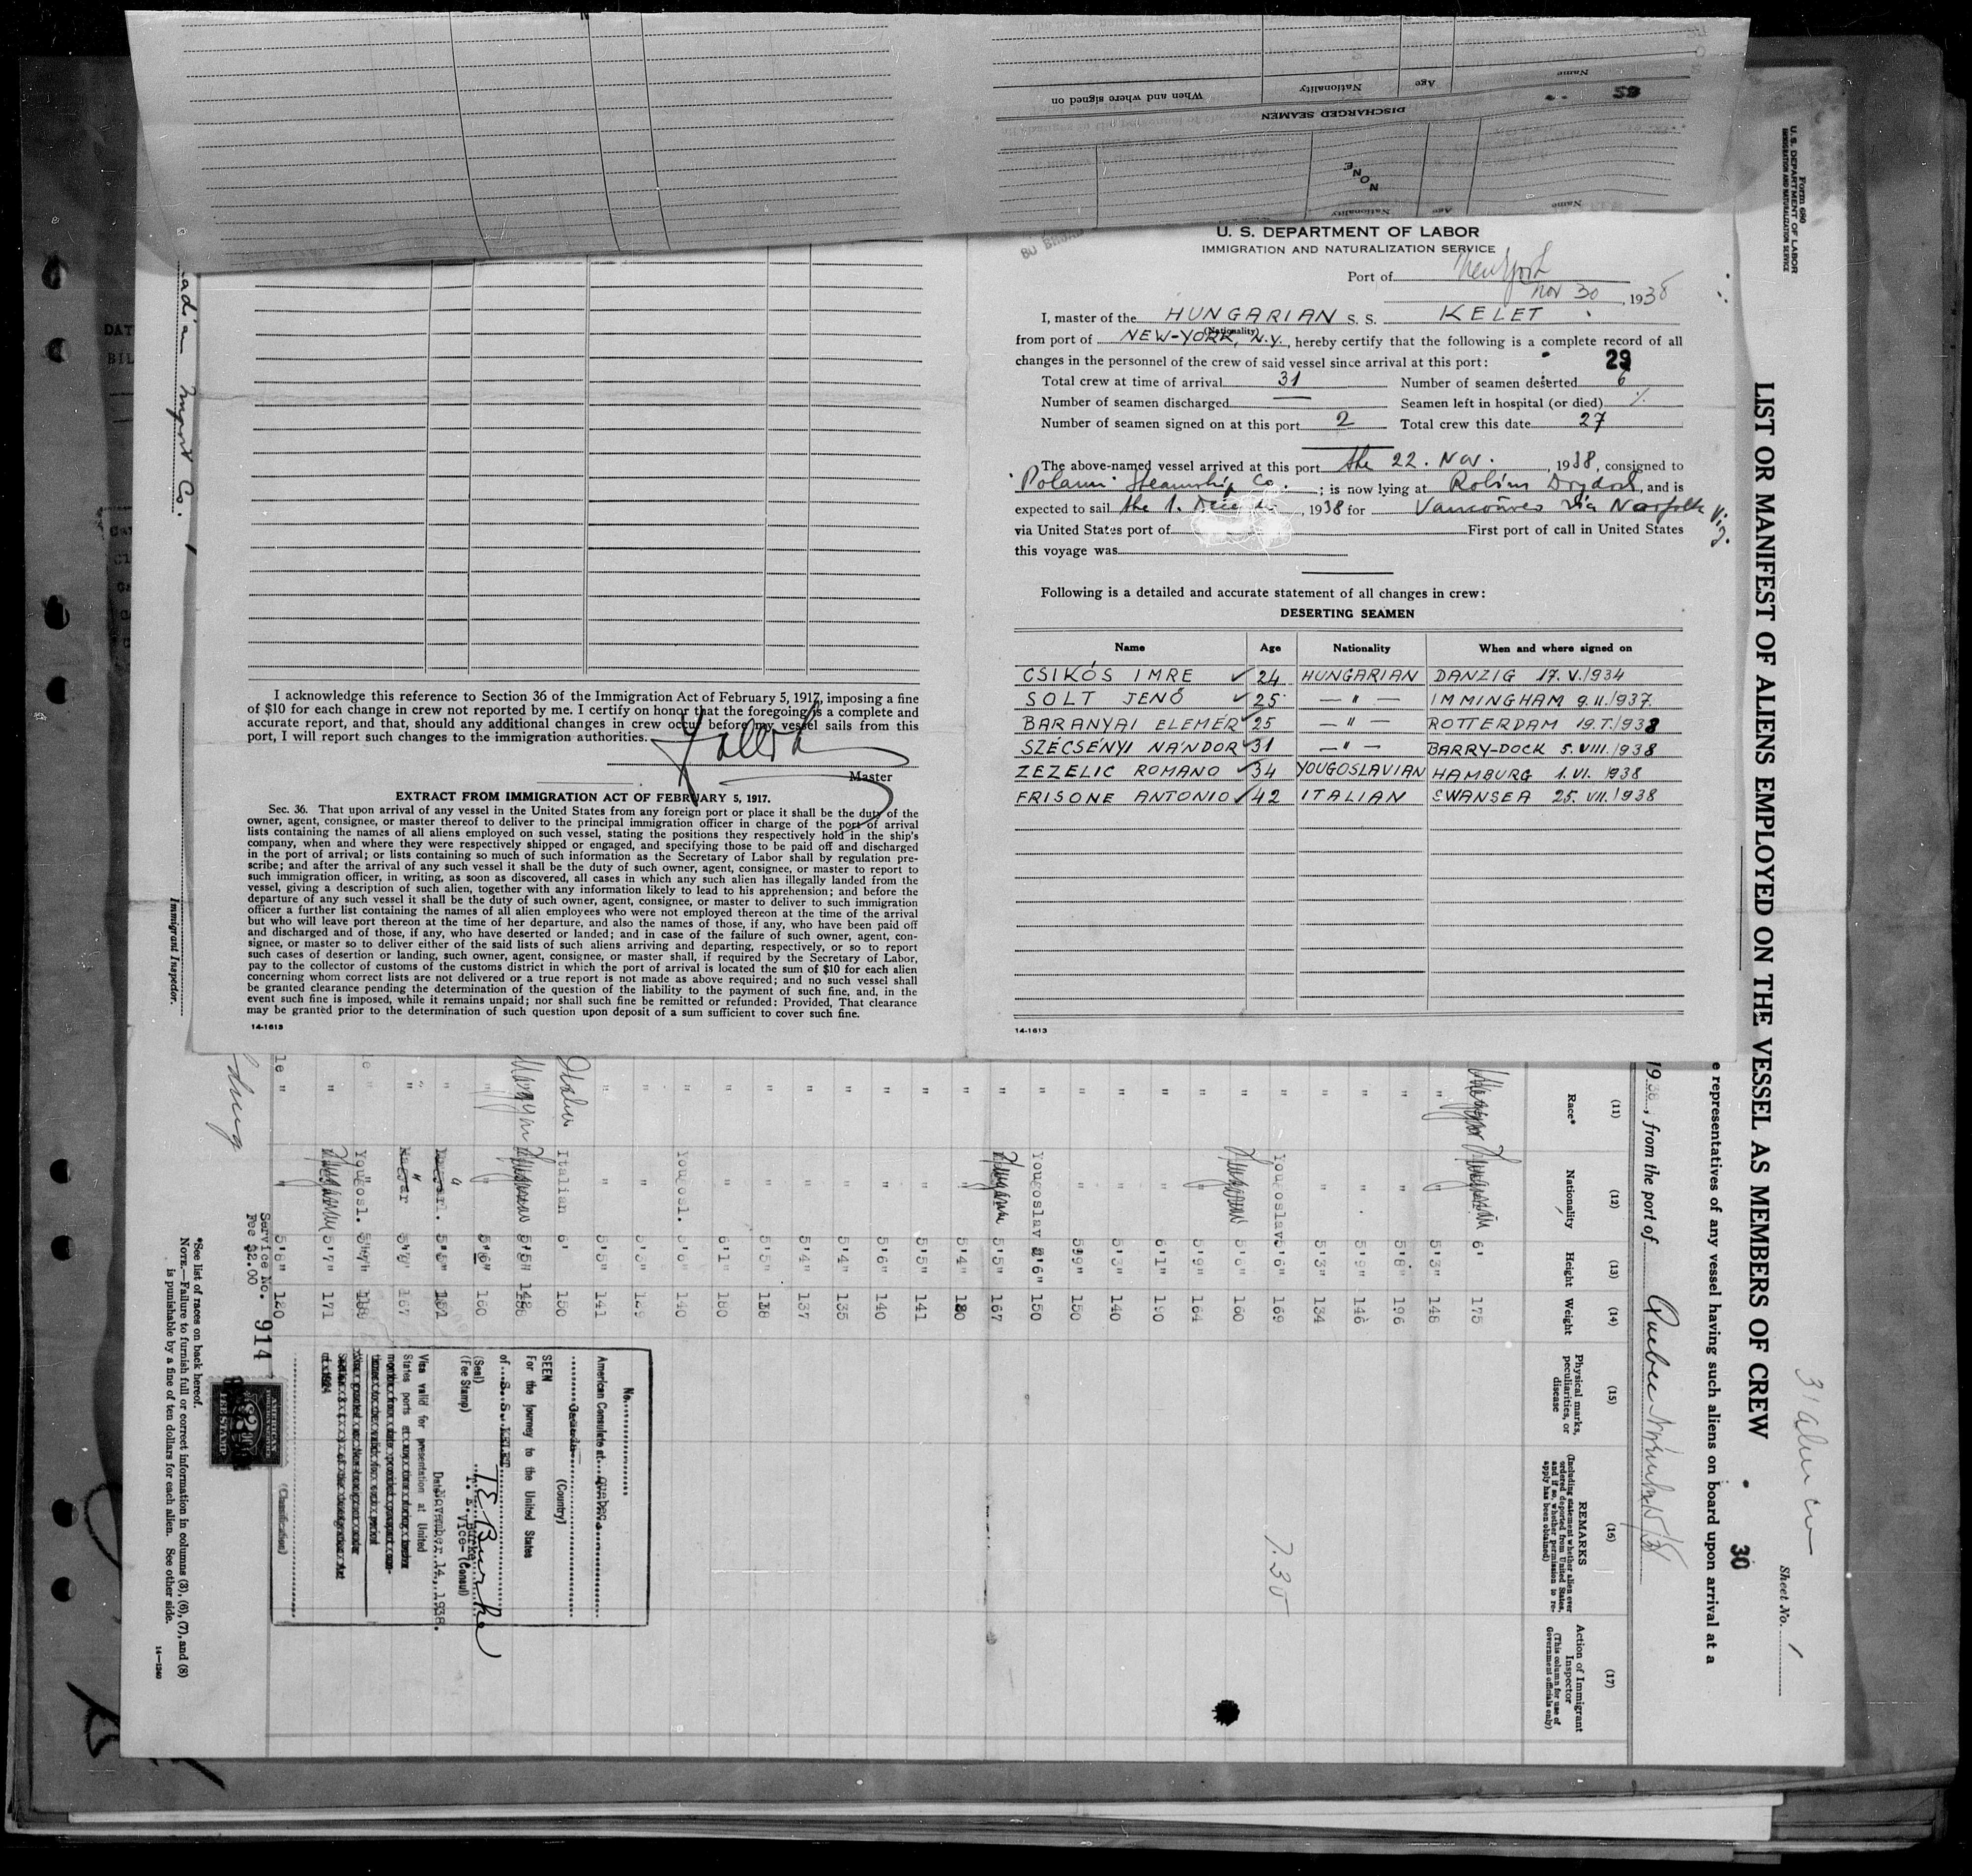 When and where signed on
Nationality
Age
Name
DISCHARGED SEAMEN
NONE
Nationality
Age
Name
U. S. DEPARTMENT OF LABOR
IMMIGRATION AND NATURALIZATION SERVICE
Port of New York
Nov 30, 1938
I, master of the HUNGARIAN S. S. KELET
(Nationality)
from port of NEW-YORK, N.Y., hereby certify that the following is a complete record of all
changes in the personnel of the crew of said vessel since arrival at this port:
29
Total crew at time of arrival 31 Number of seamen deserted 6
Number of seamen discharged — Seamen left in hospital (or died) %
Number of seamen signed on at this port 2 Total crew this date 27
The above-named vessel arrived at this port the 22. Nov., 1938, consigned to
Steamship Co.; is now lying at Robins Drydock, and is
expected to sail the 1., 1938 for Vancouver via Norfolk
via United States port of First port of call in United States
this voyage was
Following is a detailed and accurate statement of all changes in crew:
DESERTING SEAMEN
Name Age Nationality When and where signed on
CSIKÓS IMRE ✓ 24 HUNGARIAN DANZIG 17. V./1934
SOLT JENŐ ✓ 25 — " — IMMINGHAM 9. II./937.
BARANYAI ELEMÉR ✓ 25 — " — ROTTERDAM 19. I./938
SZÉCSÉNYI NÁNDOR ✓ 31 — " — BARRY-DOCK 5. VIII./938
ZEZELIC ROMANO ✓ 34 YOUGOSLAVIAN HAMBURG 1. VI. 1938
FRISONE ANTONIO ✓ 42 ITALIAN SWANSEA 25. VII./938
14-1613
I acknowledge this reference to Section 36 of the Immigration Act of February 5, 1917, imposing a fine
of $10 for each change in crew not reported by me. I certify on honor that the foregoing is a complete and
accurate report, and that, should any additional changes in crew occur before my vessel sails from this
port, I will report such changes to the immigration authorities.
Master
EXTRACT FROM IMMIGRATION ACT OF FEBRUARY 5, 1917.
Sec. 36. That upon arrival of any vessel in the United States from any foreign port or place it shall be the duty of the
owner, agent, consignee, or master thereof to deliver to the principal immigration officer in charge of the port of arrival
lists containing the names of all aliens employed on such vessel, stating the positions they respectively hold in the ship's
company, when and where they were respectively shipped or engaged, and specifying those to be paid off and discharged
in the port of arrival; or lists containing so much of such information as the Secretary of Labor shall by regulation pre-
scribe; and after the arrival of any such vessel it shall be the duty of such owner, agent, consignee, or master to report to
such immigration officer, in writing, as soon as discovered, all cases in which any such alien has illegally landed from the
vessel, giving a description of such alien, together with any information likely to lead to his apprehension; and before the
departure of any such vessel it shall be the duty of such owner, agent, consignee, or master to deliver to such immigration
officer a further list containing the names of all alien employees who were not employed thereon at the time of the arrival
but who will leave port thereon at the time of her departure, and also the names of those, if any, who have been paid off
and discharged and of those, if any, who have deserted or landed; and in case of the failure of such owner, agent, con-
signee, or master so to deliver either of the said lists of such aliens arriving and departing, respectively, or so to report
such cases of desertion or landing, such owner, agent, consignee, or master shall, if required by the Secretary of Labor,
pay to the collector of customs of the customs district in which the port of arrival is located the sum of $10 for each alien
concerning whom correct lists are not delivered or a true report is not made as above required; and no such vessel shall
be granted clearance pending the determination of the question of the liability to the payment of such fine, and, in the
event such fine is imposed, while it remains unpaid; nor shall such fine be remitted or refunded: Provided, That clearance
may be granted prior to the determination of such question upon deposit of a sum sufficient to cover such fine.
14-1613
Import Co.
Immigrant Inspector.
Form 680
U. S. DEPARTMENT OF LABOR
IMMIGRATION AND NATURALIZATION SERVICE
Sheet No. 1
LIST OR MANIFEST OF ALIENS EMPLOYED ON THE VESSEL AS MEMBERS OF CREW
30
representatives of any vessel having such aliens on board upon arrival at a
1938, from the port of Quebec
(11) (12) (13) (14) (15) (16) (17)
Race* Nationality Height Weight Physical marks, peculiarities, or disease
REMARKS
(Including statement whether alien ever ordered deported from United States, and if so, whether permission to re-apply has been obtained)
Action of Immigrant Inspector
(This column for use of Government officials only)
Magyar Hungarian 6' 175
" " 5'3" 148
" " 5'8" 196
" " 5'9" 146
" " 5'3" 134
" Yougoslav 5'6" 169
" Hungarian 5'6" 160
" " 5'9" 164
" " 6'1" 190
" " 5'3" 140
" " 5'9" 150
" Yougoslav 5'6" 150
" Hungarian 5'5" 167
" " 5'4" 180
" " 5'5" 141
" " 5'6" 140
" " 5'4" 135
" " 5'4" 137
" " 5'5" 138
" " 6'1" 180
" Yougosl. 5'6" 140
" " 5'3" 129
" " 5'5" 141
Italian Italian 6' 150
Magyar Hungarian 5'5"
" " 5'6" 160
" " 5'5" 151
" " 167
" Yougosl.
" Hungarian 5'7" 171
" " 5'8" 120
730
No.
American Consulate at Quebec
(Country)
SEEN
For the journey to the United States
of S. S. KELET
T. E. Burke
(Seal) T. E. Burke
(Fee Stamp) Vice-(Consul)
Date November 14, 1938.
Visa valid for presentation at United
States ports
(Classification)
Service No. 914
Fee $2.00
AMERICAN
FOREIGN SERVICE
$2
FEE STAMP
*See list of races on back hereof.
NOTE.—Failure to furnish full or correct information in columns (3), (6), (7), and (8)
is punishable by a fine of ten dollars for each alien. See other side.
14—1240